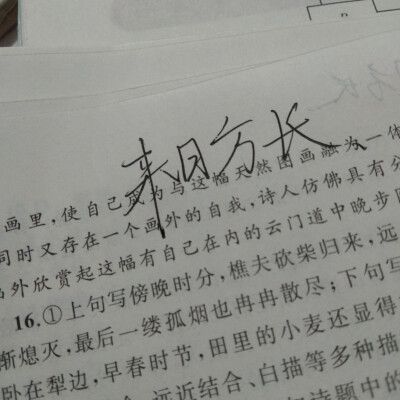 来日方长
画里，使自己成为与这幅天然图画融为一体
同时又存在一个画外的自我，诗人仿佛具有分
外欣赏起这幅有自己在内的云门道中晚步
16.①上句写傍晚时分，樵夫砍柴归来，远
渐熄灭，最后一缕孤烟也冉冉散尽；下句写
卧在犁边，早春时节，田里的小麦还显得
远近结合、白描等多种描
诗题中的